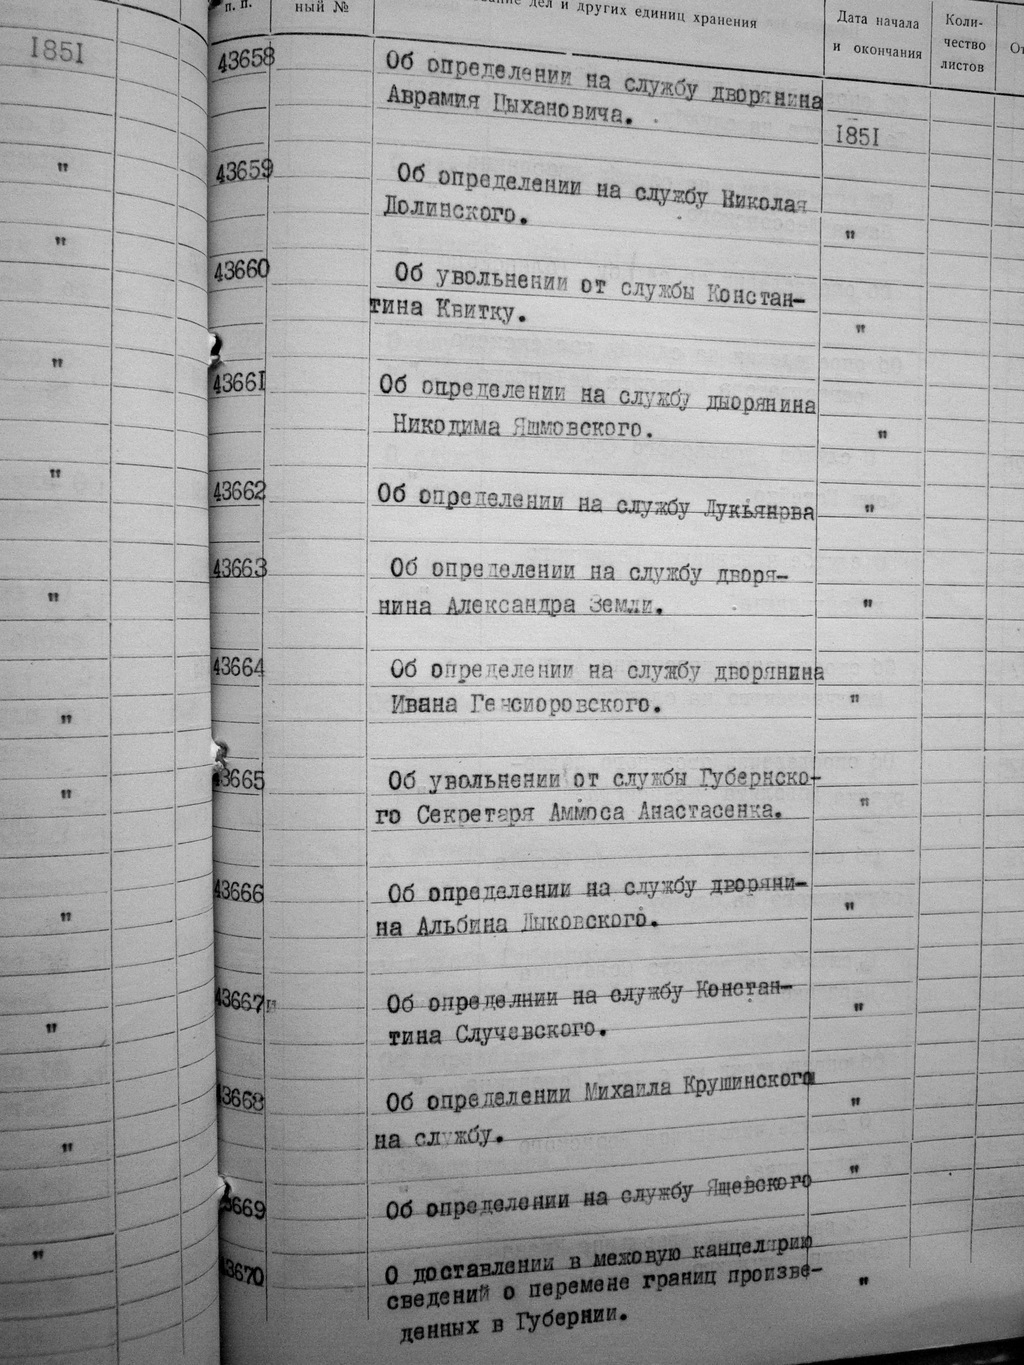 п. п.
ный №
дел и других единиц хранения
Дата начала
и окончания
Коли-
чество
листов
1851
43658
Об определении на службу дворянина
Аврамия Цыхановича.
1851
"
43659
Об определении на службу Николая
Долинского.
"
"
43660
Об увольнении от службы Констан-
тина Квитку.
"
"
43661
Об определении на службу дворянина
Никодима Яшмовского.
"
"
43662
Об определении на службу Лукьянова
"
43663
Об определении на службу дворя-
нина Александра Земли.
"
"
43664
Об определении на службу дворянина
Ивана Генсиоровского.
"
"
43665
Об увольнении от службы Губернско-
го Секретаря Аммоса Анастасенка.
"
"
43666
Об определении на службу дворяни-
на Альбина Лыковского.
"
"
43667
Об определнии на службу Констан-
тина Случевского.
"
"
43668
Об определении Михаила Крушинского
на службу.
"
"
43669
Об определении на службу Ящевского
"
"
43670
О доставлении в межовую канцелярию
сведений о перемене границ произве-
денных в Губернии.
"